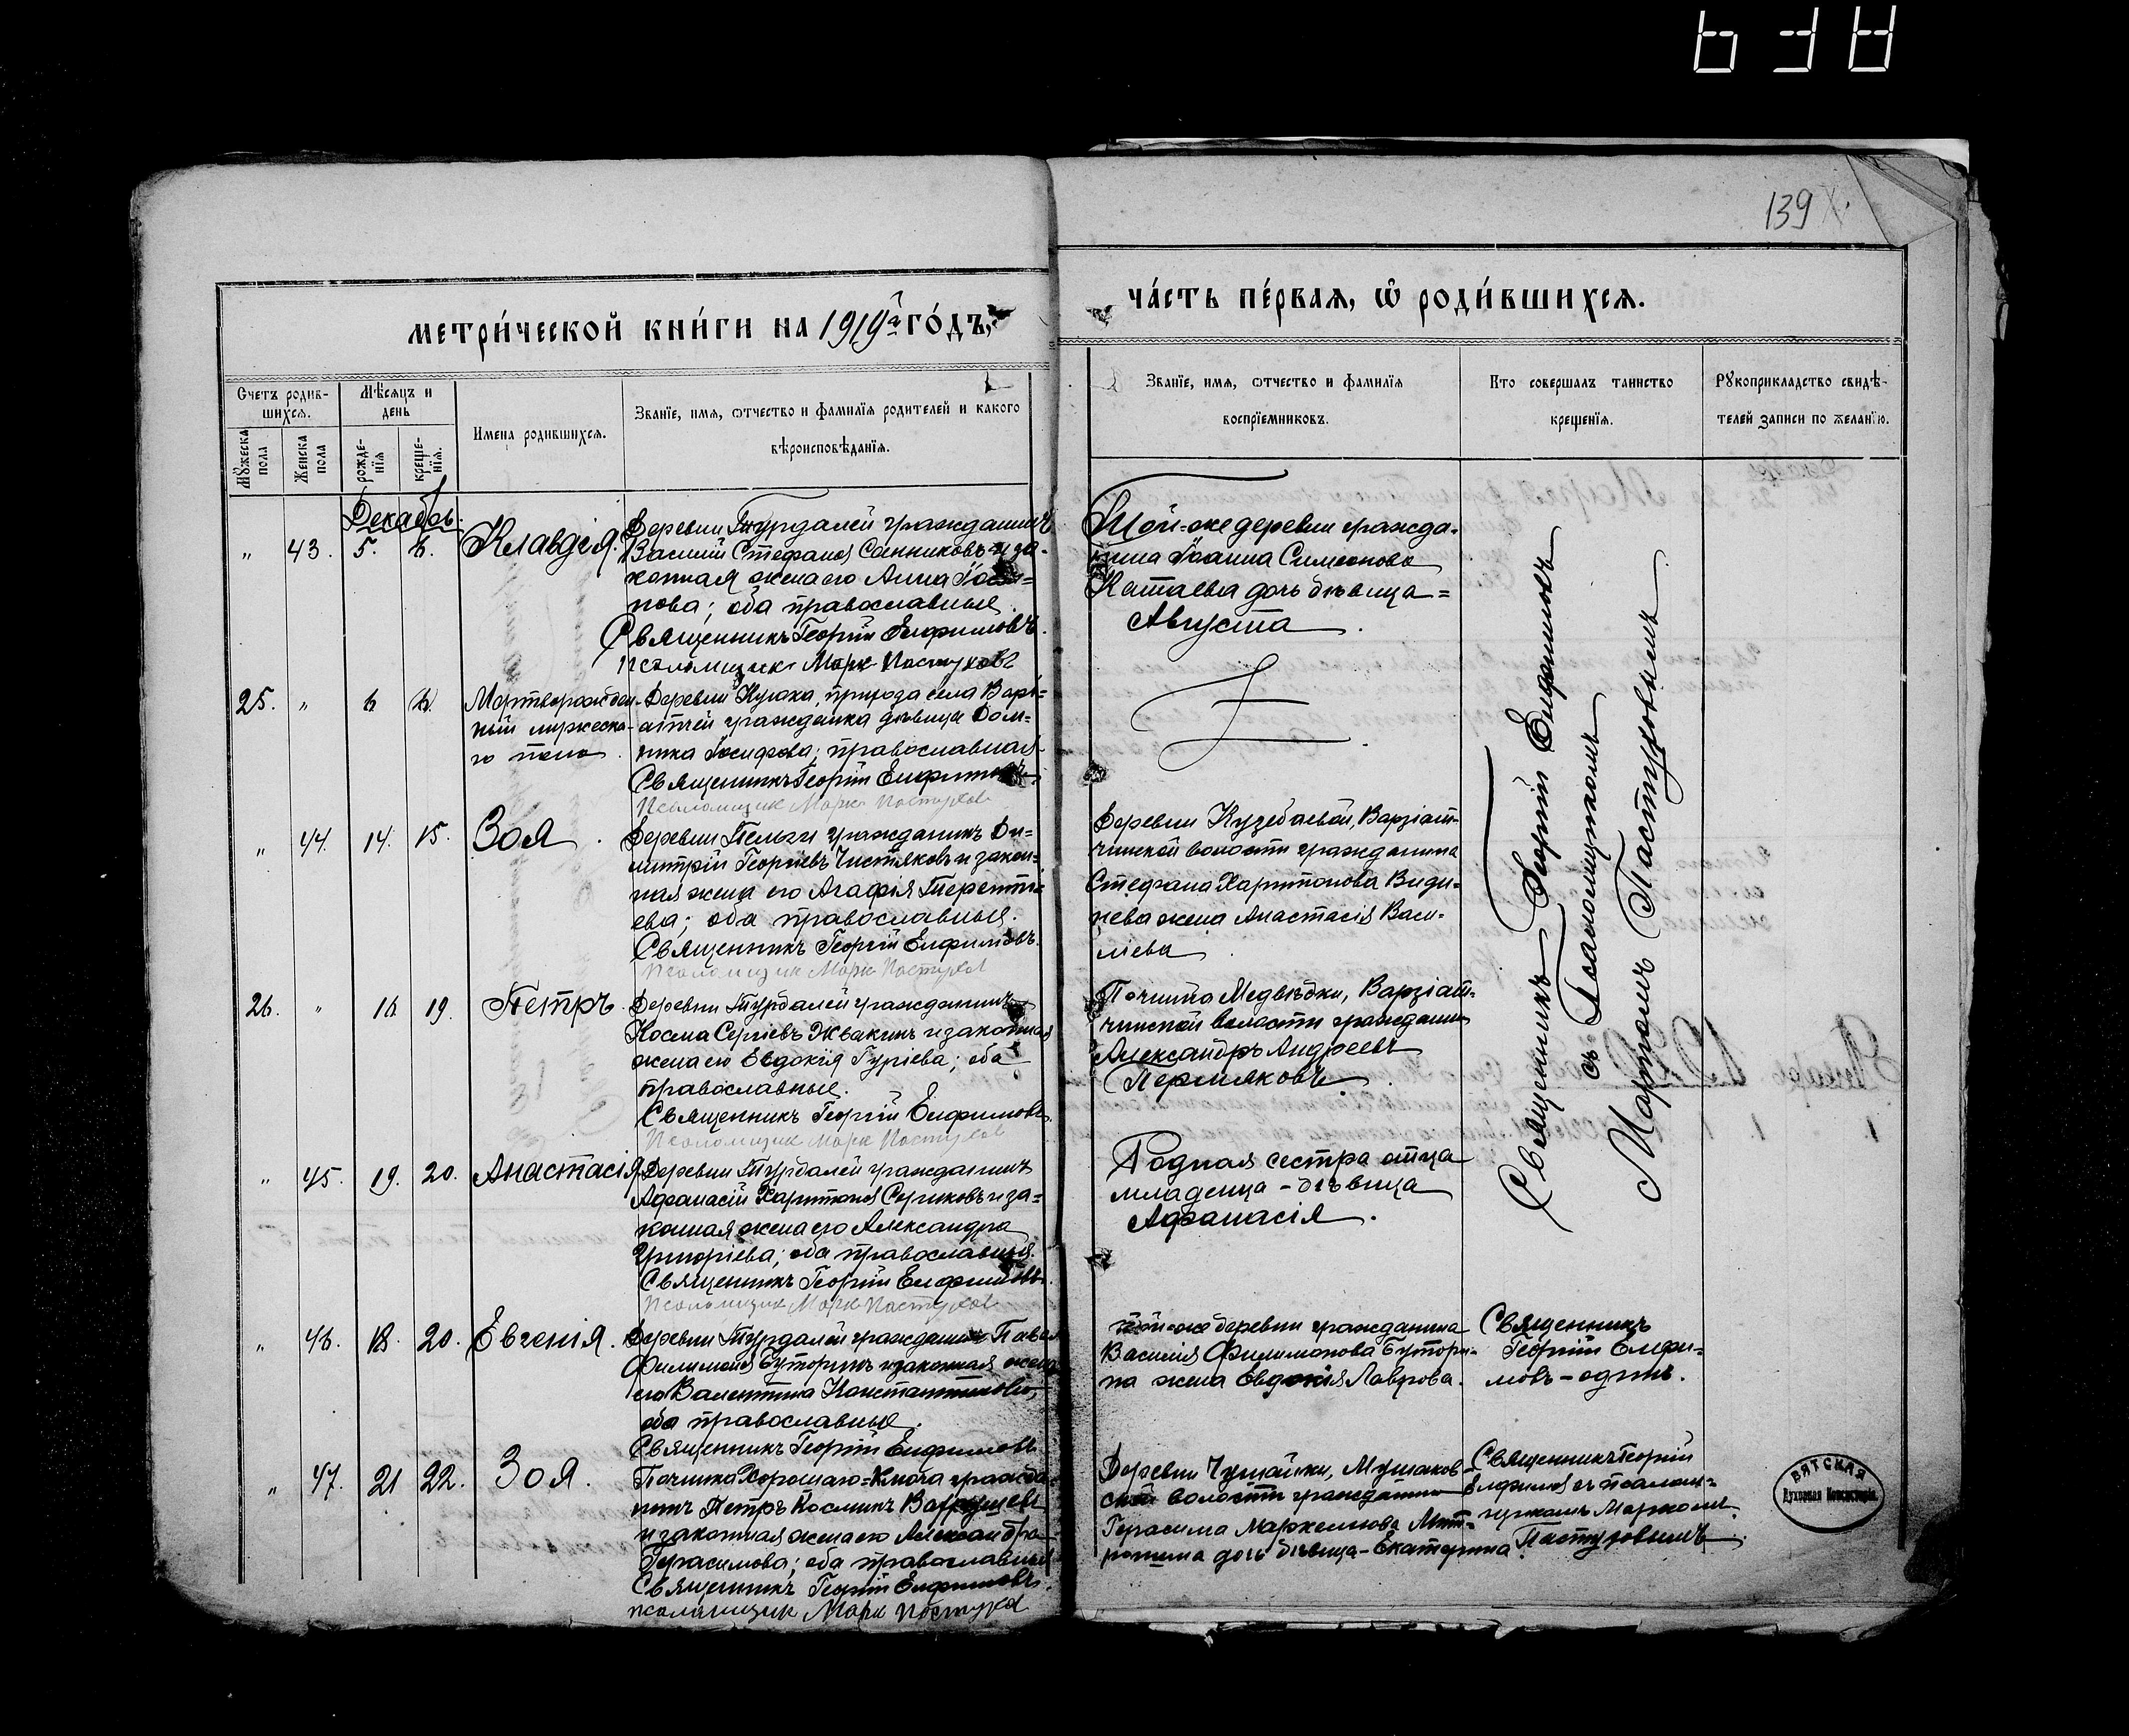 139
МЕТРИ́ЧЕСКОЙ КНИ́ГИ НА 1919й ГО́ДЪ,
ЧА́СТЬ ПЕ́РВАЯ, Ѡ҆ РОДИ́ВШИХСЯ.
Счетъ родив-
шихся.
Мѣсяцъ и
день
Мужеска
пола
Женска
пола
рожде-
нія
креще-
нія.
Имена родившихся.
Званїе, имя, ѡтчество и фамилїя родителей и какого
вѣроисповѣданїя.
Званїе, имя, ѡтчество и фамилїя
воспрїемниковъ.
Кто совершалъ таинство
крещенїя.
Рукоприкладство свидѣ-
телей записи по желанїю.
Декабрь.
" 43. 5. 6. Клавдія.
Деревни Турдалей гражданинъ
Василій Стефановъ Санниковъ и за-
конная жена его Анна
пова; оба православные.
Священникъ Георгій Елфимовъ.
Псаломщикъ Маркъ Пастуховъ
Той-же деревни гражда-
нина Іоанна Симеонова
Катаева дочь дѣвица=
Августа.
25. " 6 6. Мертворожден-
ный мужеска-
го пола.
Деревни природа села Варзі=
атчей гражданка дѣвица Дом-
ника Іосифова; православная
Священникъ Георгій Елфимовъ
Псаломщикъ Маркъ Пастуховъ
" 44. 14. 15. Зоя.
Деревни Пельги гражданинъ Ди=
митрій Георгіевъ Чистяковъ и закон=
ная жена его Агафія Теренті=
ева; оба православные.
Священникъ Георгій Елфимовъ.
Псаломщикъ Маркъ Пастуховъ
Деревни Кузебаевой, Варзіат-
чинской волости гражданина
Стефана Харитонова Види-
нева жена Анастасія Васи-
ліева.
26. " 16 19. Петръ.
Деревни Турдалей гражданинъ
Косма Сергіевъ Жвакинъ и законная
жена его Евдокія Гуріева; оба
православные.
Священникъ Георгій Елфимовъ
Псаломщикъ Маркъ Пастуховъ
Починка Медвѣдки, Варзіат-
чинской волости гражданинъ
Александръ Андреевъ
Пермяковъ.
" 45. 19. 20. Анастасія
Деревни Турдалей гражданинъ
Афанасій Харитоновъ Сериковъ и за=
конная жена его Александра
Григоріева; оба православные.
Священникъ Георгій Елфимовъ.
Псаломщикъ Маркъ Пастуховъ
Родная сестра отца
младенца - дѣвица
Афанасія.
Священникъ Георгій Елфимовъ
съ Псаломщикомъ
Маркомъ Пастуховымъ.
" 46. 18. 20. Евгенія.
Деревни Турдалей гражданинъ Павелъ
Филимоновъ Буторинъ и законная жена
его Валентина Константинова,
оба православные.
Священникъ Георгій Елфимовъ
той-же деревни гражданина
Василія Филимонова Бутори-
на жена Евдокія Лаврова.
Священникъ
Георгій Елфи=
мовъ - одинъ.
" 47. 21 22. Зоя.
Починка Хорошаго=Ключа гражда-
нинъ Петръ Косминъ
и законная жена его Александра
Герасимова; оба православные
Священникъ Георгій Елфимовъ.
псаломщикъ Маркъ Пастуховъ
Деревни волости гражданина
Герасима Маркеллова Мит-
рошина дочь дѣвица - Екатерина.
Священникъ Георгій
Елфимовъ съ псалом-
щикомъ Маркомъ
Пастуховымъ
ВЯТСКАЯ
Духовная Консисторія.